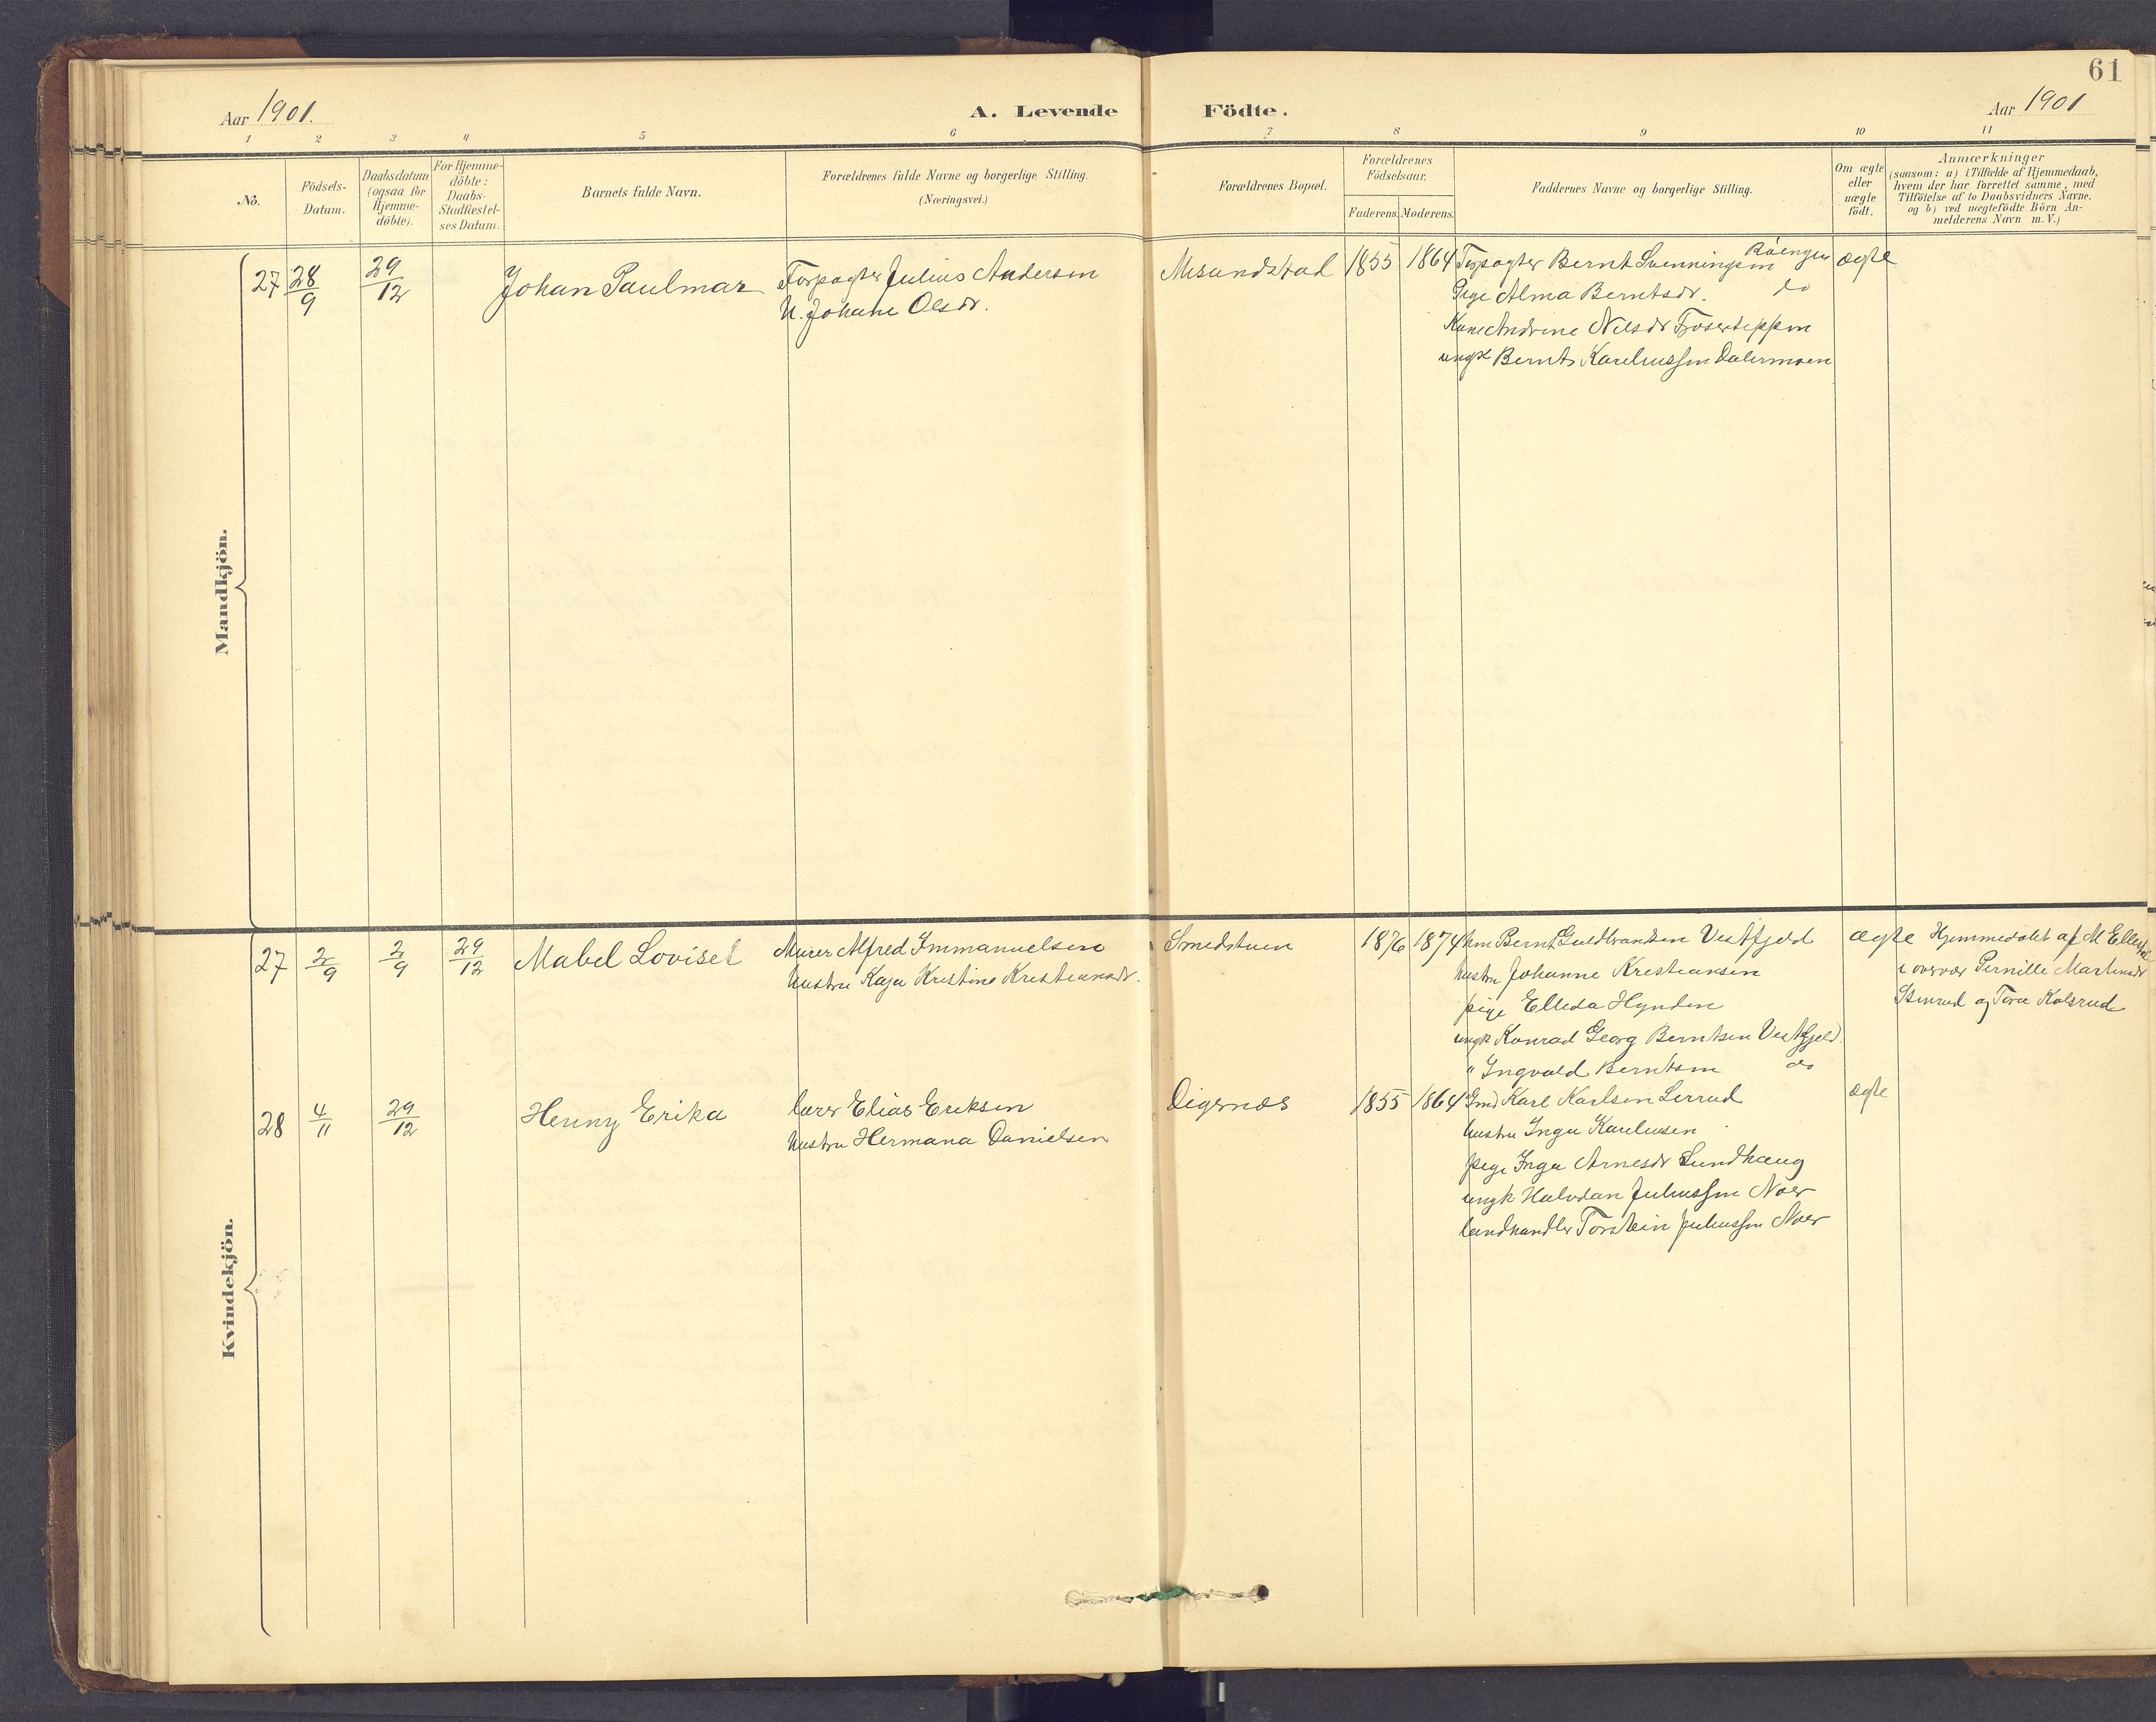 61
Aar 1901.
A. Levende Födte.
Aar 1901
1 2 3 4 5 6 7 8 9 10 11
No.
Födsels-
Datum.
Daabsdatum
(ogsaa for
Hjemme-
döbte).
For Hjemme-
döbte:
Daabs-
Stadfæstel-
ses Datum.
Barnets fulde Navn.
Forældrenes fulde Navne og borgerlige Stilling.
(Næringsvei.)
Forældrenes Bopæl.
Forældrenes
Födselsaar.
Faderens. Moderens.
Faddernes Navne og borgerlige Stilling.
Om ægte
eller
uægte
födt.
Anmærkninger
(saasom: a) i Tilfælde af Hjemmedaab,
hvem der har forrettet samme, med
Tilföielse af to Daabsvidners Navne,
og b) ved uægtefödte Börn An-
melderens Navn m. V.)
Mandkjön.
27 28/9 29/12 Johan Paulmar
Forpagter Julius Andersen
H. Johane Olsdr.
Alsundstad 1855 1864
Forpagter Bernt Svenningsen Röengen
Pige Alma Berntsdr. do
Kone Andrine Nilsdr
ungk Bernt Kareliussen Dalermoen
ægte
Kvindekjön.
27 2/9 2/9 29/12 Mabel Lovise
Murer Alfred Immanuelsen
hustru Kaja Kristine Kristiansdr.
Smedstuen 1876 1874
Bernt Guldbrandsen Vestfjeld
hustru Johanne Kristiansen
pige Elleda Hynden
ungk Konrad Georg Berntsen Vestfjeld.
" Ingvald Berntsen do
ægte
Hjemmedøbt af M
i overvær Pernille Martinsdr
Stenrud og Tora Kolsrud
28 4/11 29/12 Henny Erika
lærer Elias Eriksen
hustru Hermana Danielsen
Digernes 1855 1864
Gmd Karl Karlsen Lerrud
hustru Inga Kareliusen
pige Inga Arnesdr Sundhaug
ungk Halvdan Juliussen Noer
landhandler Torstein Juliussen Noer
ægte